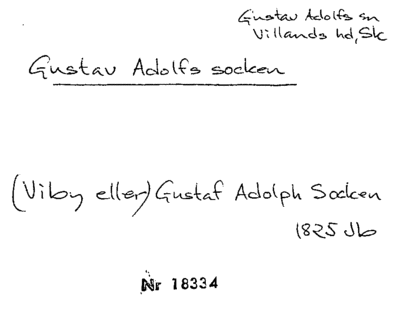 Gustav Adolfs sn
Villands hd, Sk
Gustav Adolfs socken
(Viby eller) Gustaf Adolph Socken
1825 Jb
Nr 18334